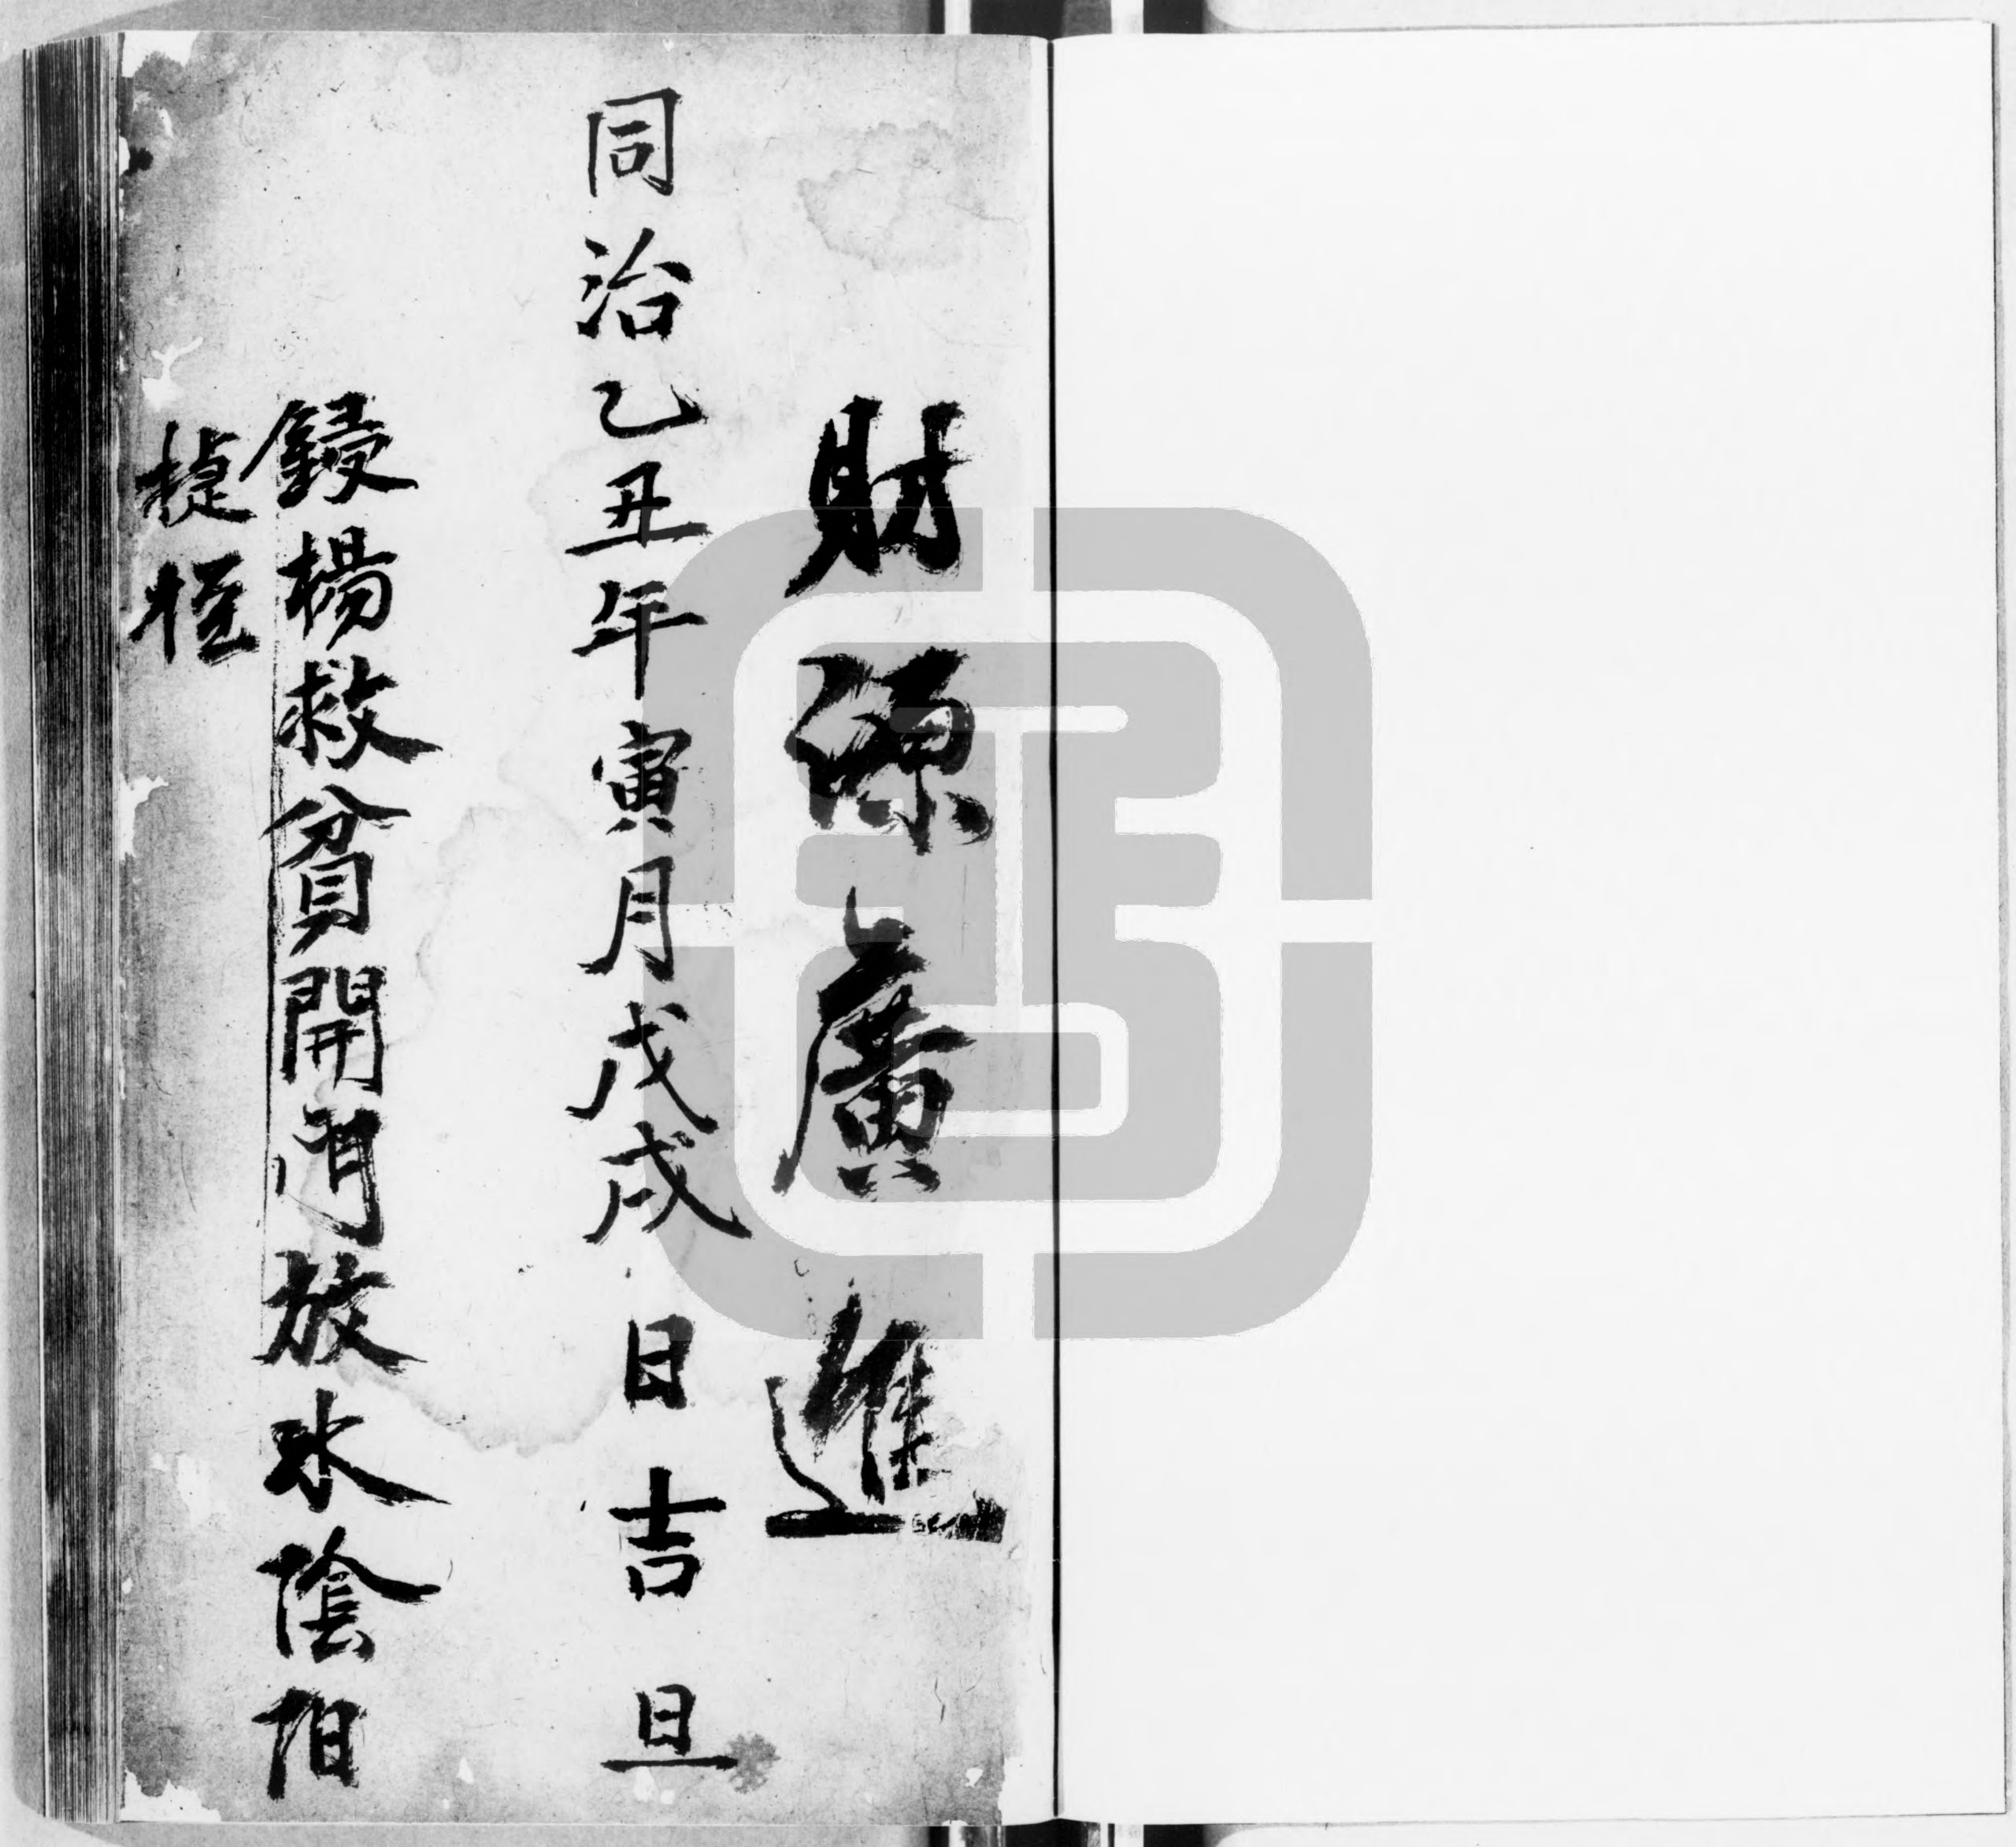 財源廣進
同治乙丑年寅月戊戌日吉旦
鋟楊救貧開門放水陰陽
捷徑